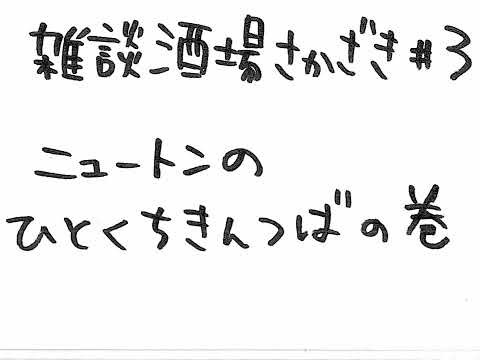 雑談酒場さかざき#3
ニュートンの
ひとくちきんつばの巻